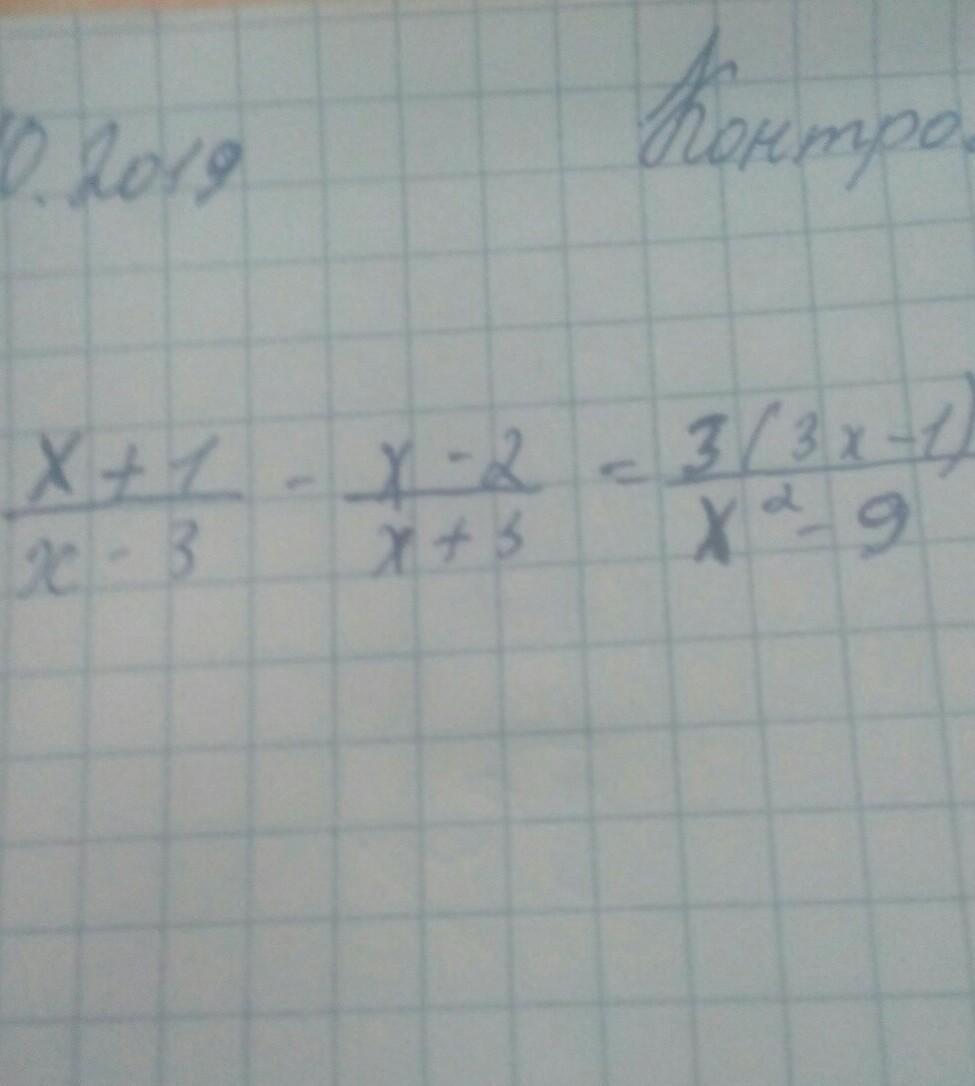 0.2019 Контро
x + 1 / x - 3 - x - 2 / x + 3 = 3(3x - 1) / x² - 9